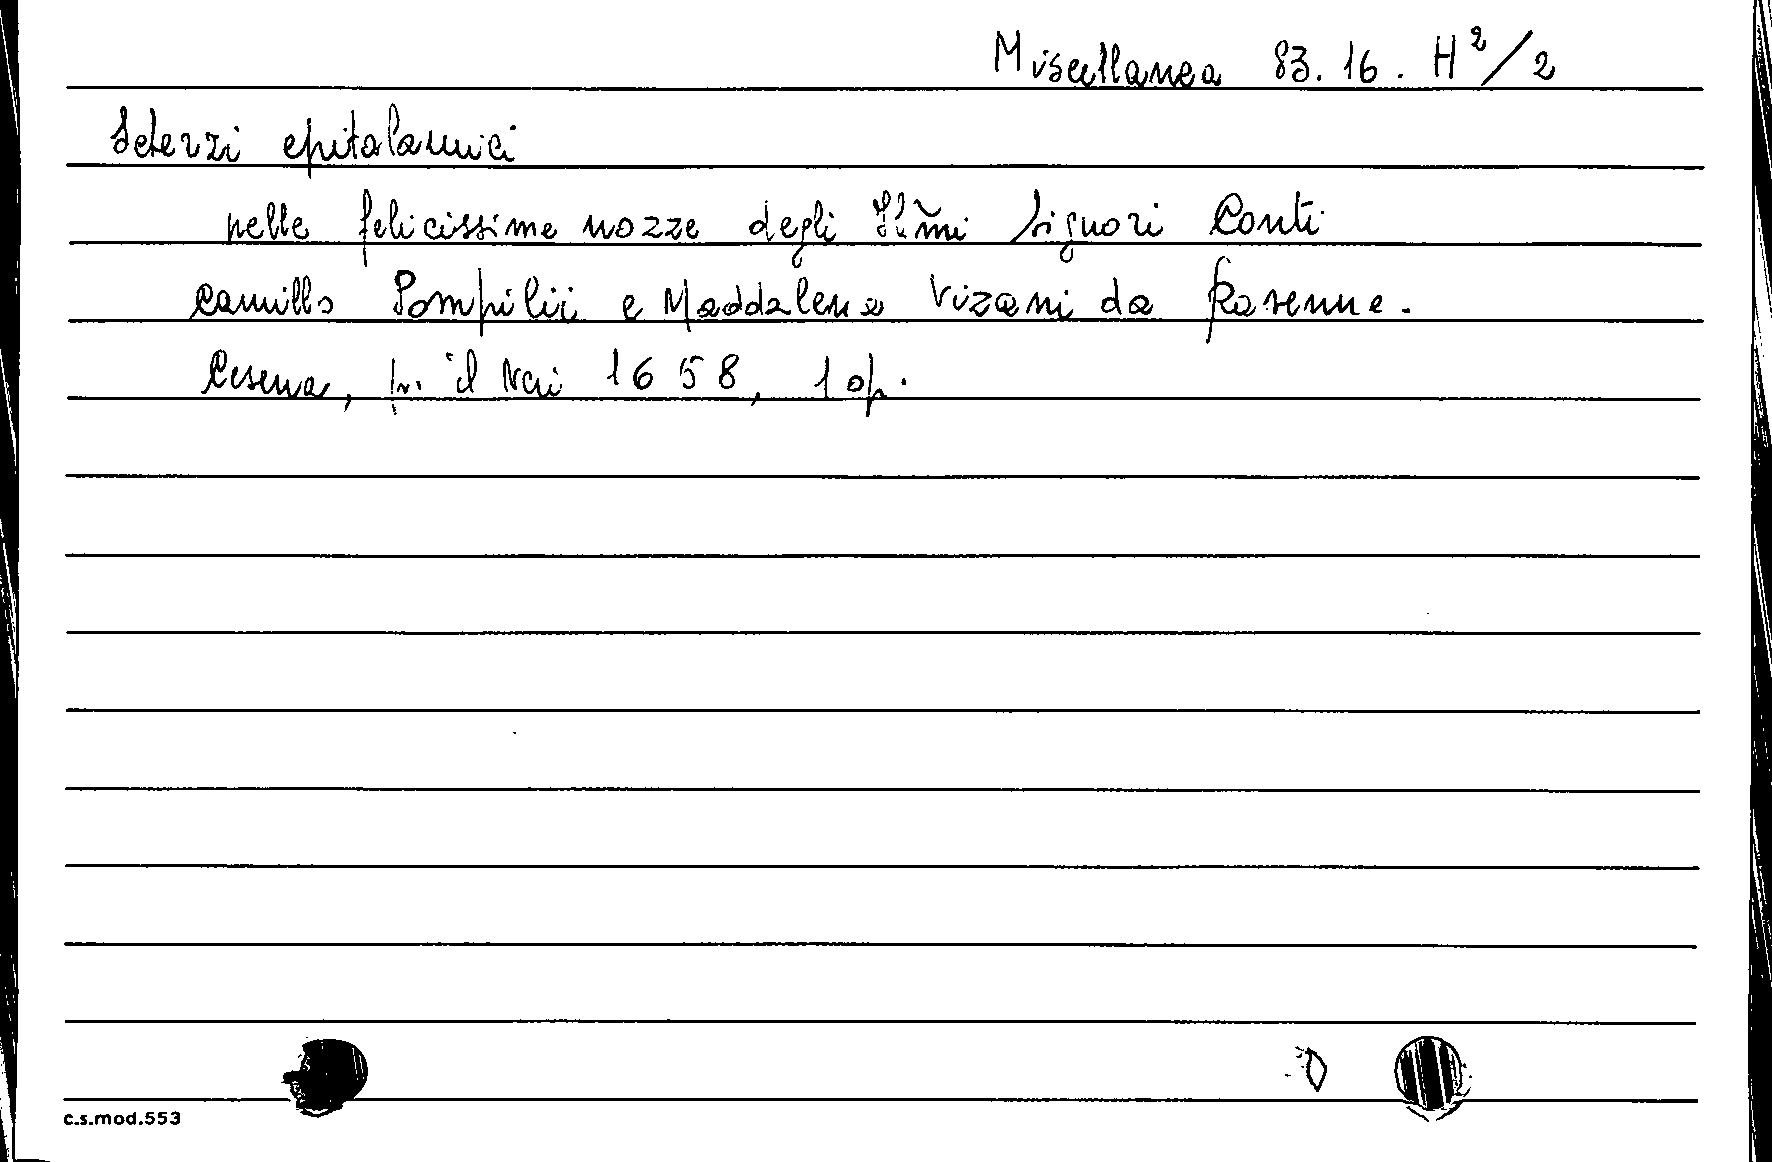 Miscellanea 83.16. H²/2
Scherzi epitalamici
nelle felicissime nozze degli Ill̃mi Signori Conti
Camillo Pompilii e Maddalena Vizani da Ravenna.
Cesena, pr. il Neri 1658, 1 op.
c.s.mod.553